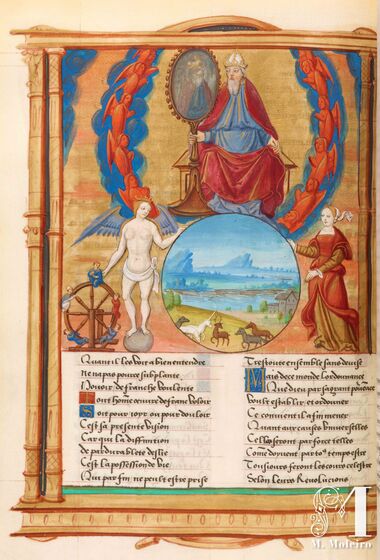 Quant il le voit a bien entendre
Ne na pas pouoir subplante
Pouoir de franche voulente
Dont homme euure de franc voloir
Soit pour ioyr ou pour douloir
Cest sa presente vision
Car qui la diffinition
De pardurablete deslie
Cest la possession de vie
Qui par fin ne peult estre prise
Trestoute ensemble sans deuise
Mais de ce monde lordonnance
Que dieu par sa grant
Voult establir et ordonner
Ce conuient il a fin mener
Quant aux causes vniuerselles
Celles seront par force telles
Comme doyuent par to⁹ temps estre
Tousiours feront les cours celestre
Selon leurs Reuolucions
M
M. Moleiro